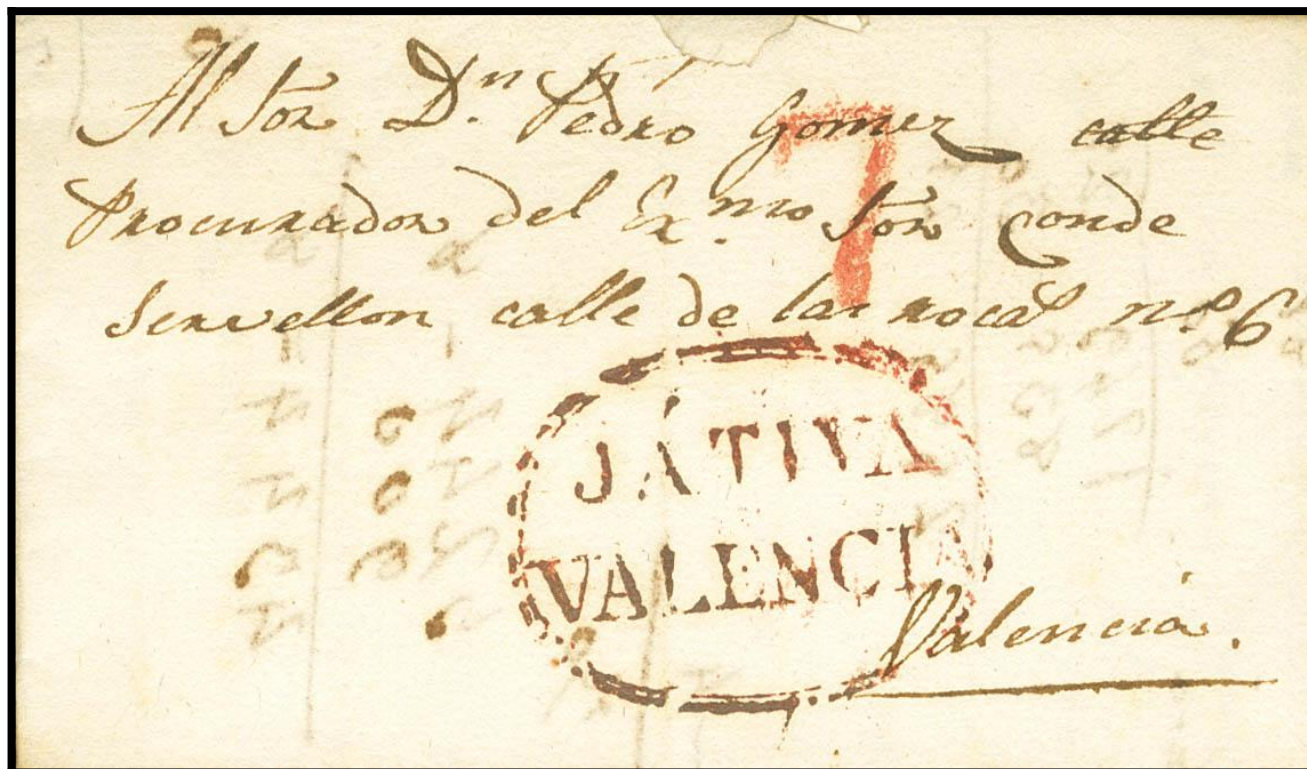 Al Sor Dn. Pedro Gomez calle
7
Procurador del Ex.mo Sor Conde
Servellon calle de las rocas no. 6
JÁTIVA
VALENCIA
Valencia.